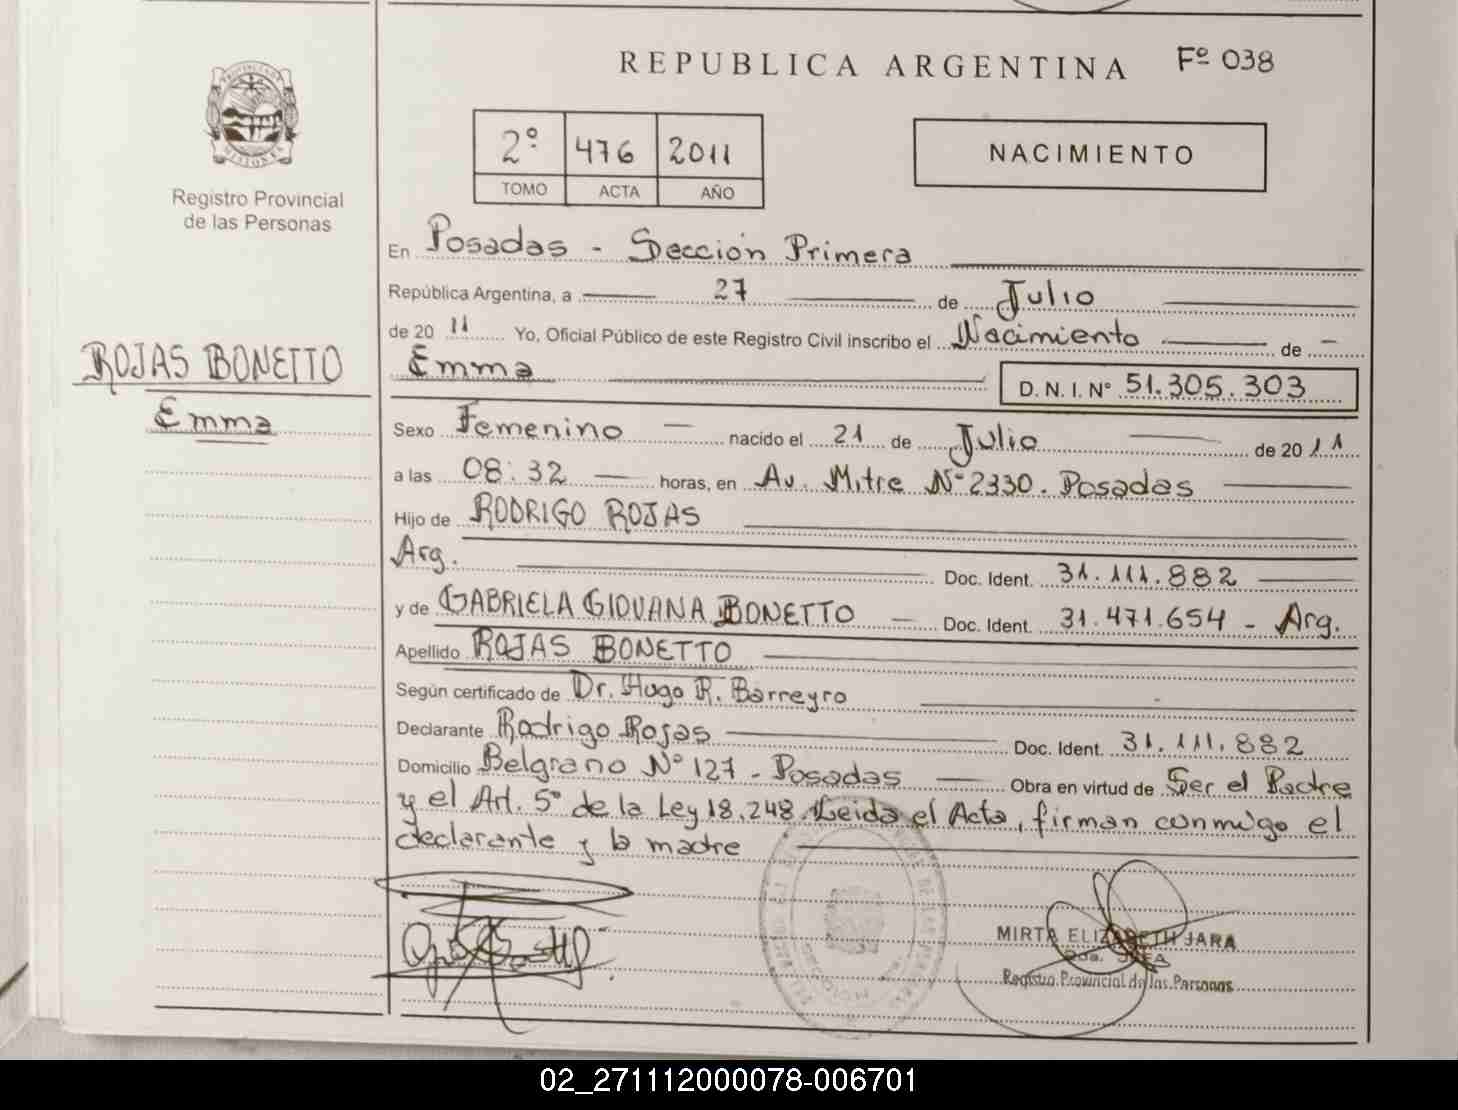 REPUBLICA ARGENTINA Fº 038
PROVINCIA DE MISIONES
Registro Provincial
de las Personas
2º 476 2011
TOMO ACTA AÑO
NACIMIENTO
En Posadas - Sección Primera
República Argentina, a 27 de Julio
de 20 11 Yo, Oficial Público de este Registro Civil inscribo el Nacimiento de
ROJAS BONETTO
Emma
Emma D. N. I. Nº 51.305.303
Sexo Femenino nacido el 21 de Julio de 20 11
a las 08:32 horas, en Av. Mitre Nº 2330. Posadas
Hijo de RODRIGO ROJAS
Arg. Doc. Ident. 31.111.882
y de GABRIELA GIOVANA BONETTO Doc. Ident. 31.471.654 - Arg.
Apellido ROJAS BONETTO
Según certificado de Dr. Hugo R. Barreyro
Declarante Rodrigo Rojas Doc. Ident. 31.111.882
Domicilio Belgrano Nº 127 - Posadas Obra en virtud de Ser el Padre
y el Art. 5º de la Ley 18.248. Leida el Acta, firman conmigo el
declarante y la madre
MIRTA ELIZABETH JARA
Registro Provincial de las Personas
02_271112000078-006701